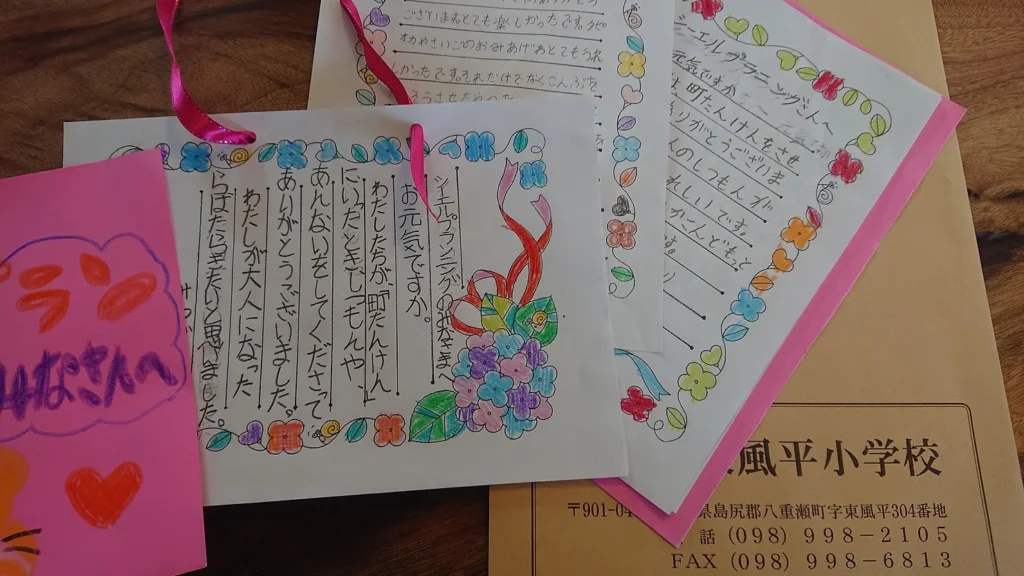 ございますとても楽しかったです。
さいごのおみあげもとてもうれ
しかったです。それだけでなくこんぶを
シエルプランニングのみなさまへ
お元気ですか。
わたしたちが町たんけん
にいったときしつもんや、
あんないをしてくださって
ありがとうございました。
わたしが大人になった
らはたらきたいと思いました。
ラ
みなさんへ
さんへ
元気ですか
町たんけんをさせ
りがとうございま
のしつもん
れしいです。
こんども
風平小学校
〒901-04
県島尻郡八重瀬町字東風平304番地
話 (098) 998-2105
FAX (098) 998-6813